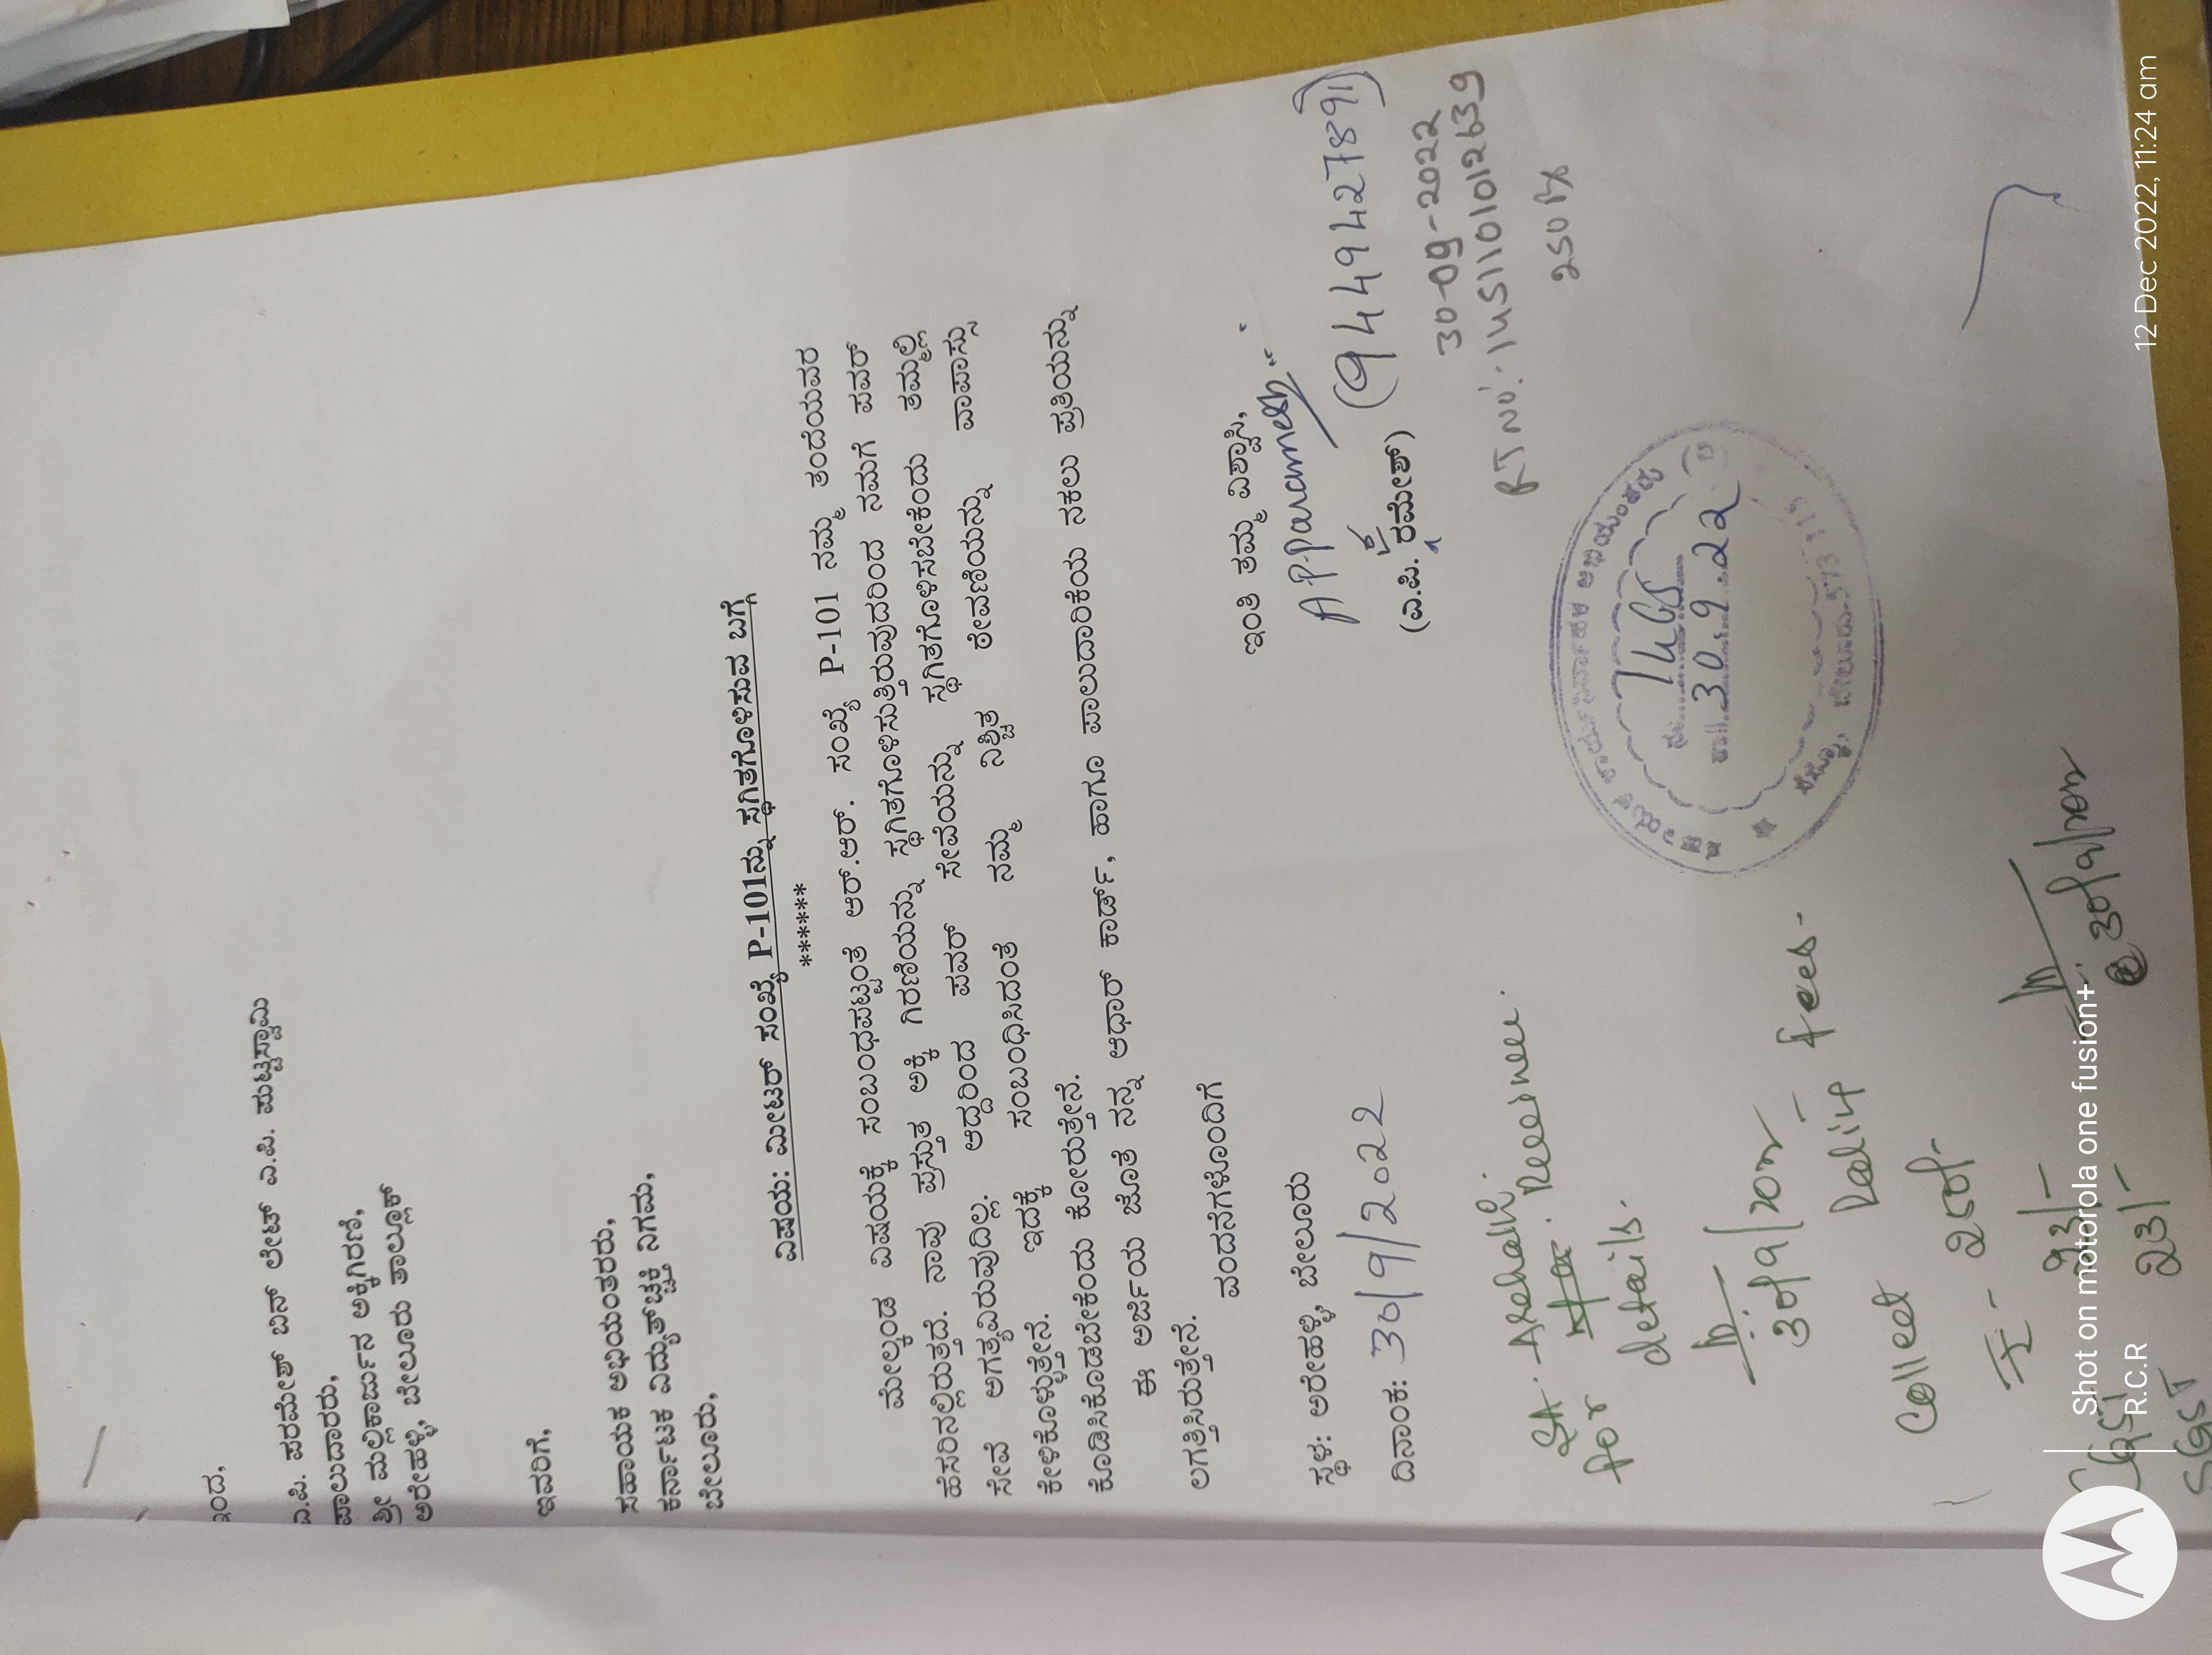 ಇಂದ,
ಎ.ಪಿ. ಪರಮೇಶ್ ಬಿನ್ ಲೇಟ್ ಎ.ಪಿ. ಪುಟ್ಟಸ್ವಾಮಿ
ಪಾಲುದಾರರು,
ಶ್ರೀ ಮಲ್ಲಿಕಾರ್ಜುನ ಅಕ್ಕಿಗಿರಣಿ,
ಅರೇಹಳ್ಳಿ, ಬೇಲೂರು ತಾಲ್ಲೂಕ್
ಇವರಿಗೆ,
ಸಹಾಯಕ ಅಭಿಯಂತರರು,
ಕರ್ನಾಟಕ ವಿದ್ಯುತ್‌ಚ್ಛಕ್ತಿ ನಿಗಮ,
ಬೇಲೂರು,
ವಿಷಯ: ಮೀಟರ್ ಸಂಖ್ಯೆ P-101ನ್ನು ಸ್ಥಗಿತಗೊಳಿಸುವ ಬಗ್ಗೆ
******
ಮೇಲ್ಕಂಡ ವಿಷಯಕ್ಕೆ ಸಂಬಂಧಪಟ್ಟಂತೆ ಆರ್.ಆರ್. ಸಂಖ್ಯೆ P-101 ನಮ್ಮ ತಂದೆಯವರ
ಹೆಸರಿನಲ್ಲಿರುತ್ತದೆ. ನಾವು ಪ್ರಸ್ತುತ ಅಕ್ಕಿ ಗಿರಣಿಯನ್ನು ಸ್ಥಗಿತಗೊಳಿಸುತ್ತಿರುವುದರಿಂದ ನಮಗೆ ಪವರ್
ಸೇವೆ ಅಗತ್ಯವಿರುವುದಿಲ್ಲ. ಆದ್ದರಿಂದ ಪವರ್ ಸೇವೆಯನ್ನು ಸ್ಥಗಿತಗೊಳಿಸಬೇಕೆಂದು ತಮ್ಮಲ್ಲಿ
ಕೇಳಿಕೊಳ್ಳುತ್ತೇನೆ. ಇದಕ್ಕೆ ಸಂಬಂಧಿಸಿದಂತೆ ನಮ್ಮ ನಿಶ್ಚಿತ ಠೇವಣಿಯನ್ನು ವಾಪಾಸ್ಸು
ಕೊಡಿಸಿಕೊಡಬೇಕೆಂದು ಕೋರುತ್ತೇನೆ.
ಈ ಅರ್ಜಿಯ ಜೊತೆ ನನ್ನ ಆಧಾರ್ ಕಾರ್ಡ್, ಹಾಗೂ ಪಾಲುದಾರಿಕೆಯ ನಕಲು ಪ್ರತಿಯನ್ನು
ಲಗತ್ತಿಸಿರುತ್ತೇನೆ.
ವಂದನೆಗಳೊಂದಿಗೆ
ಇಂತಿ ತಮ್ಮ ವಿಶ್ವಾಸಿ,
A P Paramesh
(ಎ.ಪಿ. ಪರಮೇಶ್) (9449427891)
ಸ್ಥಳ: ಅರೇಹಳ್ಳಿ, ಬೇಲೂರು
ದಿನಾಂಕ: 30/9/2022
30-09-2022
RJ NO:- 1451101012639
SA. Arehalli.
for Receive
details.
30/9/2022
Collect Rating fees.
250/-
CGST 23/-
SGST 23/-
ಸಹಾಯಕ ಕಾರ್ಯನಿರ್ವಾಹಕ ಅಭಿಯಂತರರು
ನಂ. 1468
ದಿನಾಂಕ 30.9.22
ಬೇಲೂರು-573 115
Shot on motorola one fusion+
R.C.R
12 Dec 2022, 11:24 am